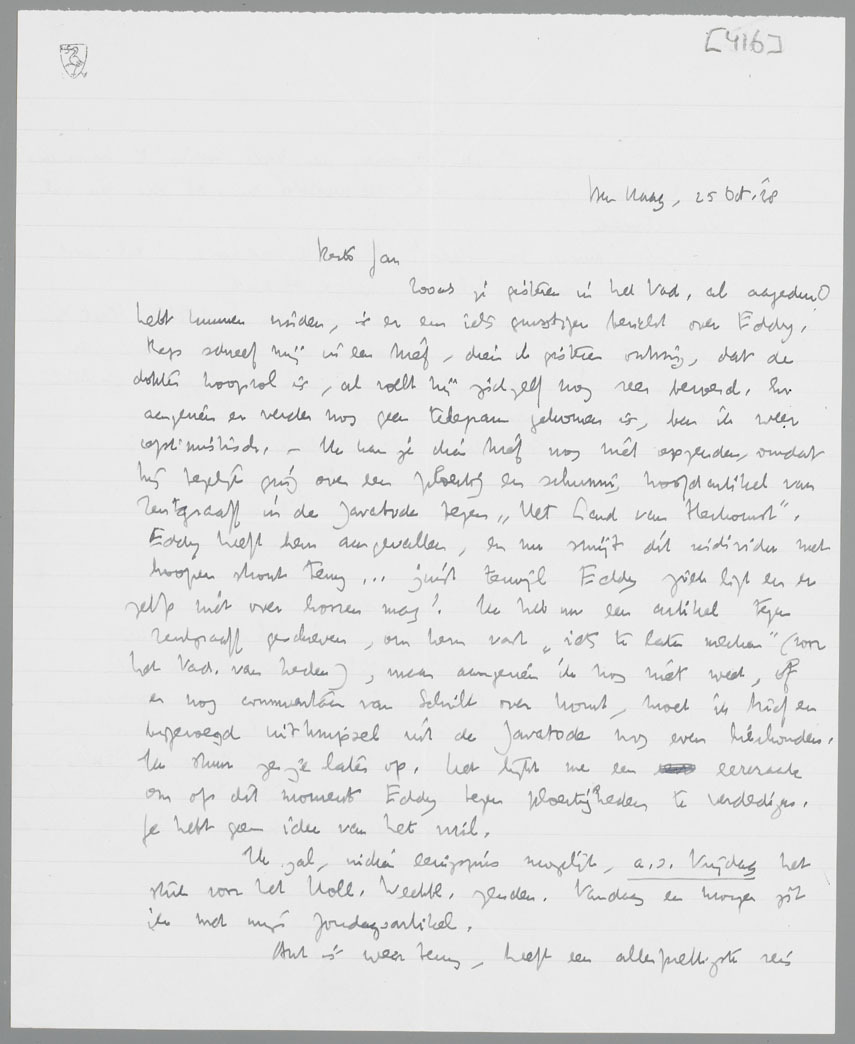 [416]
Den Haag, 25 Oct. '38
Beste Jan
Zooals je gisteren in het Vad. al avondno
hebt kunnen vinden, is er een iets gunstiger bericht over Eddy.
schreef mij in een brief, dien ik gisteren ontving, dat de
dokter hoopvol is, al voelt hij zichzelf nog zeer beroerd. En
aangezien er verder nog geen telegram gekomen is, ben ik weer
optimistisch. – Ik kan je dien brief nog niet opzenden, omdat
hij tegelijk ging over een ploertig en schunnig hoofdartikel van
Zentgraaff in de Javabode tegen „Het Land van Herkomst".
Eddy heeft hem aangevallen, en nu smijt dit individu met
hoopen stront terug... juist terwijl Eddy ziek ligt en er
zelfs niet over hooren mag! Ik heb nu een artikel tegen
Zentgraaff geschreven, om hem vast „iets te laten merken" (voor
het Vad. van heden), maar aangezien ik nog niet weet, of
er nog commentaar van Schilt over komt, moet ik brief en
bijgevoegd uitknipsel uit de Javabode nog even hierhouden.
Ik stuur ze je later op. Het lijkt me een eerezaak
om op dit moment Eddy tegen ploertigheden te verdedigen.
Je hebt geen idee van het vuil.
Ik zal, indien eenigszins mogelijk, a.s. Vrijdag het
stuk voor het Holl. Weekbl. zenden. Vandaag en morgen zit
ik met mijn Zondagsartikel.
Ant is weer terug, heeft een allerprettigste reis